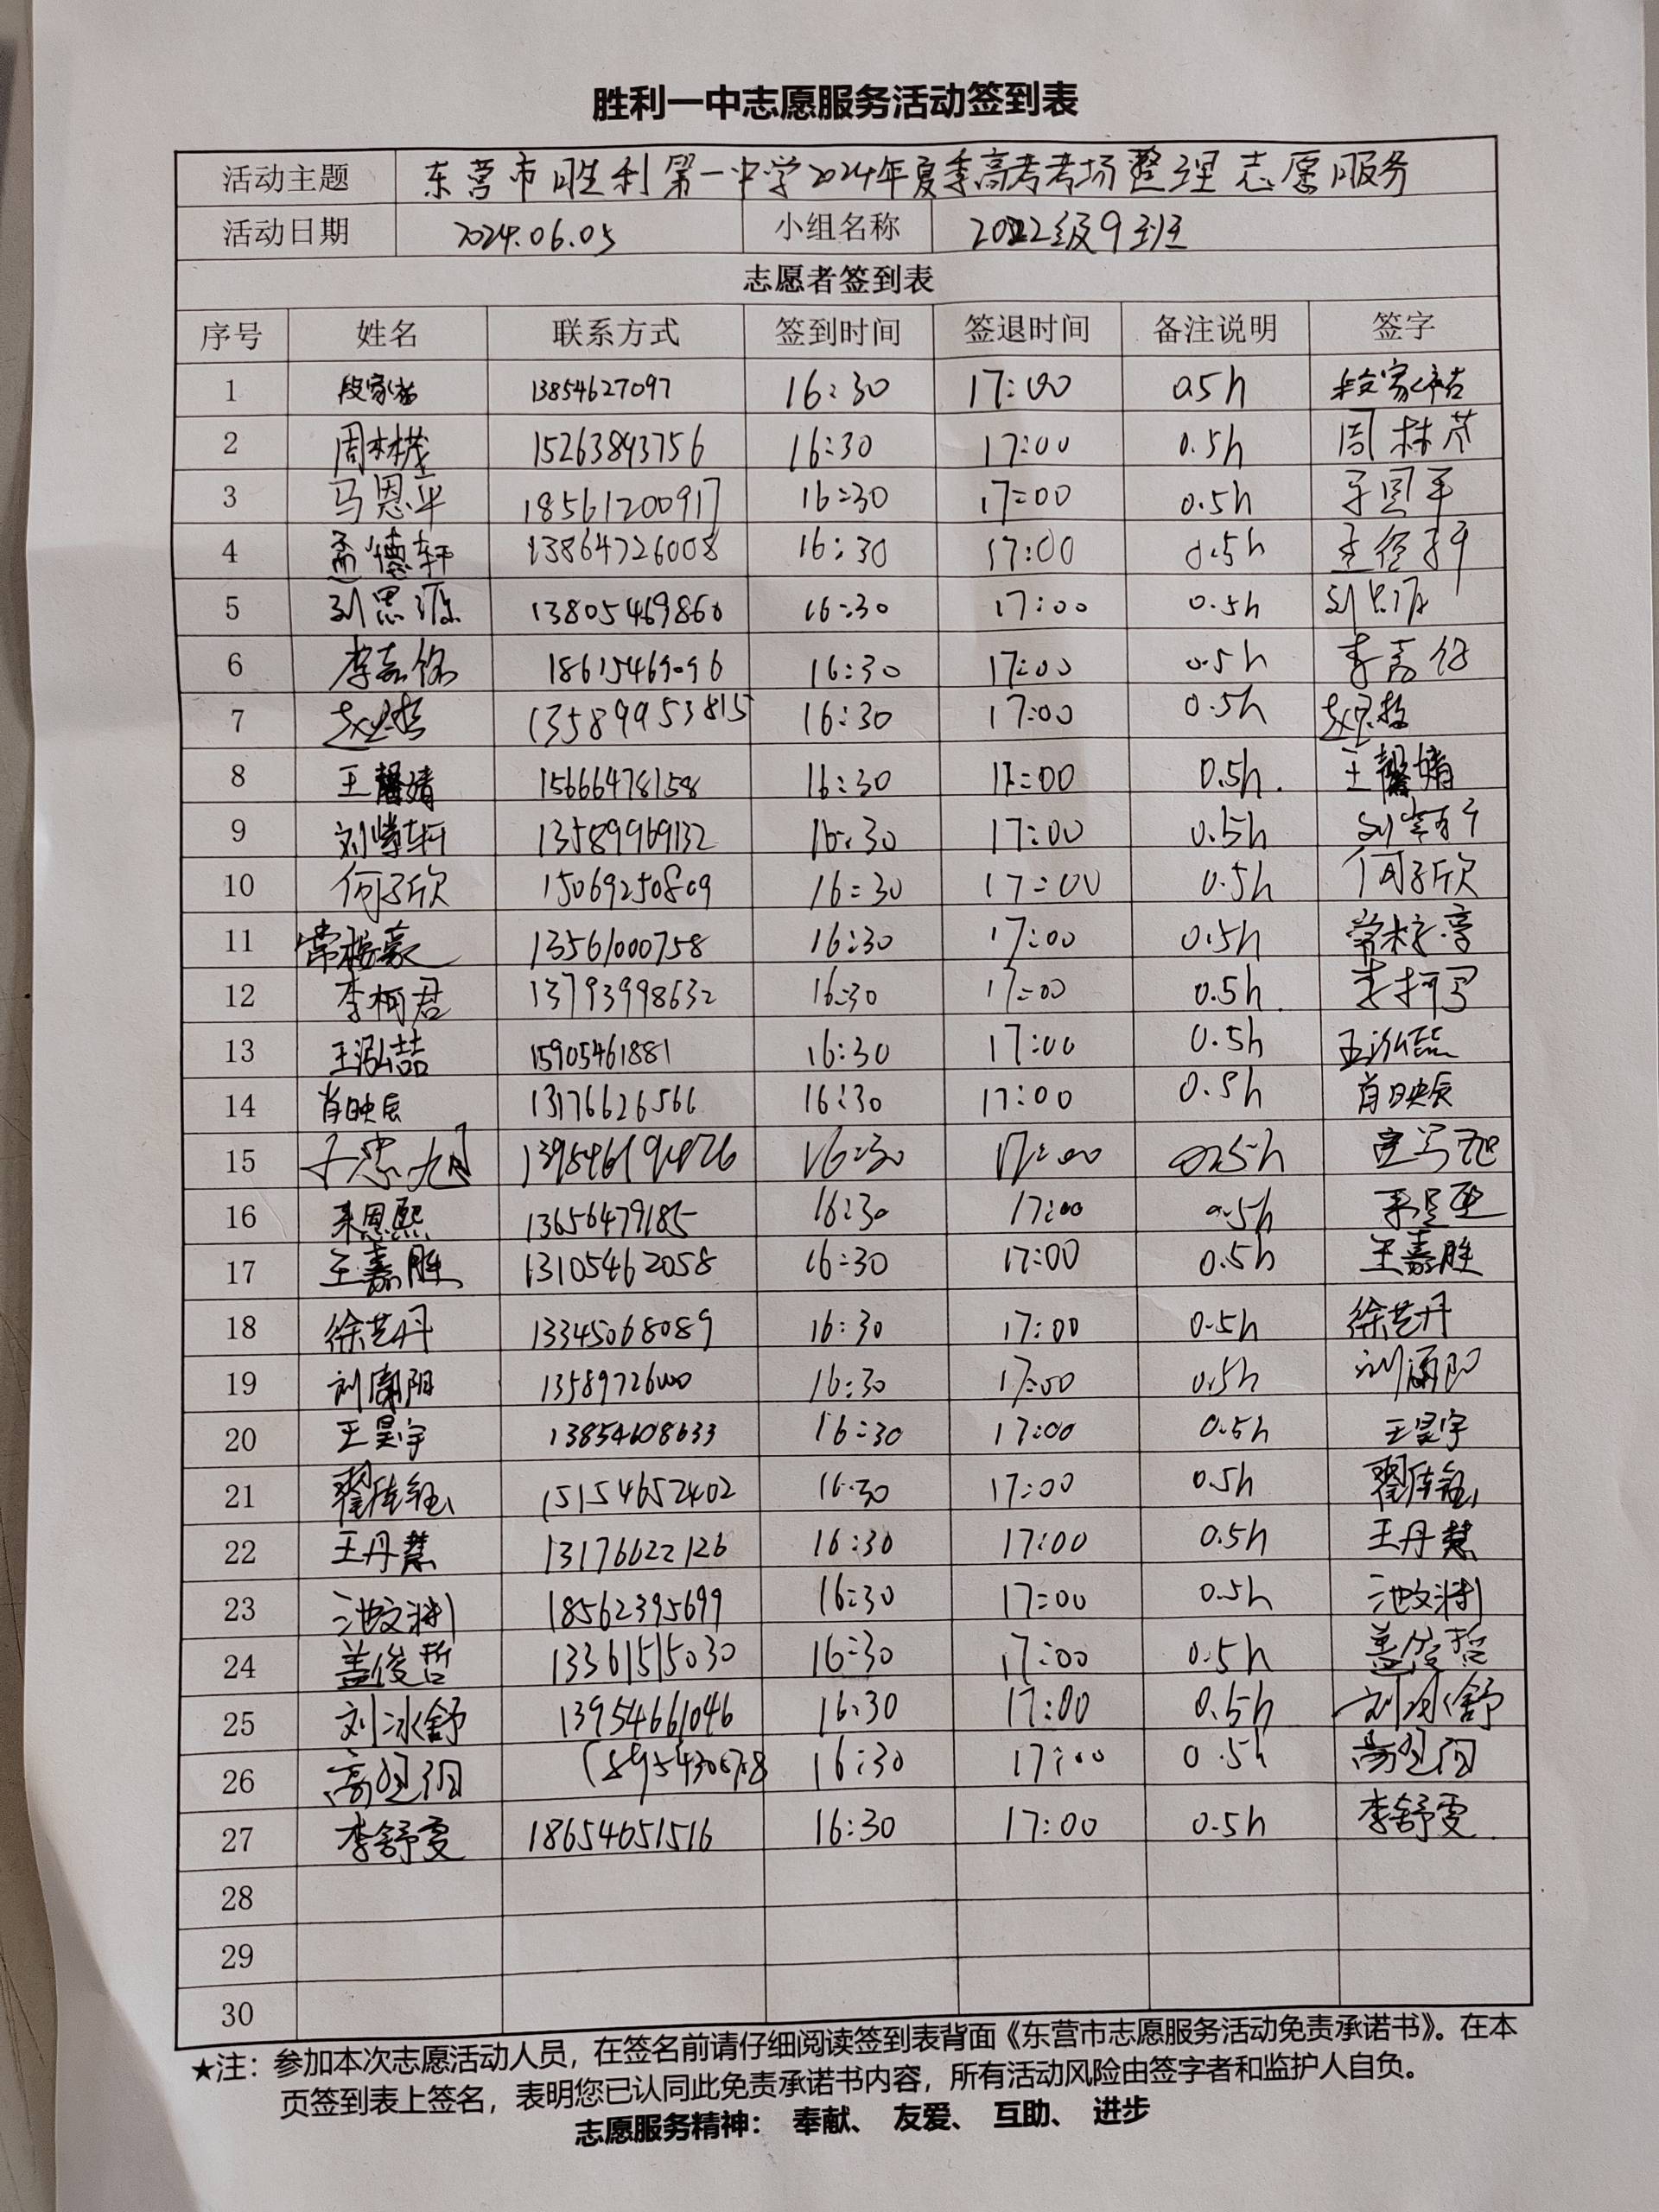 胜利一中志愿服务活动签到表
活动主题 东营市胜利第一中学2024年夏季高考考场整理志愿服务
活动日期 2024.06.05 小组名称 2022级9班
志愿者签到表
序号 姓名 联系方式 签到时间 签退时间 备注说明 签字
1 段家祐 13854627097 16:30 17:00 0.5h 段家祐
2 周林茂 15263843756 16:30 17:00 0.5h 周林茂
3 马恩平 18561200917 16:30 17:00 0.5h
4 孟德轩 13864726008 16:30 17:00 0.5h
5 刘思源 13805469860 16:30 17:00 0.5h 刘思源
6 李嘉铭 16:30 17:00 0.5h
7 13589953815 16:30 17:00 0.5h
8 王馨婧 15666478158 16:30 17:00 0.5h. 王馨婧
9 13589969132 16:30 17:00 0.5h
10 何子欣 15069250809 16:30 17:00 0.5h 何子欣
11 13561000758 16:30 17:00 0.5h
12 李柯君 13793998632 16:30 17:00 0.5h 李柯君
13 王泓喆 15905461881 16:30 17:00 0.5h 王泓喆
14 肖映辰 13176626566 16:30 17:00 0.5h 肖映辰
15 16:30 17:00 0.5h
16 13656479185 16:30 17:00 0.5h
17 王嘉胜 13105462058 16:30 17:00 0.5h 王嘉胜
18 徐艺丹 13345068089 16:30 17:00 0.5h 徐艺丹
19 16:30 17:00 0.5h
20 王昊宇 13854608633 16:30 17:00 0.5h 王昊宇
21 翟佳钰 15154652402 16:30 17:00 0.5h 翟佳钰
22 王丹慧 13176622126 16:30 17:00 0.5h 王丹慧
23 18562395699 16:30 17:00 0.5h
24 盖俊哲 13361515030 16:30 17:00 0.5h 盖俊哲
25 刘冰舒 13954661046 16:30 17:00 0.5h 刘冰舒
26 16:30 17:00 0.5h
27 李舒雯 18654651516 16:30 17:00 0.5h 李舒雯
28
29
30
★注：参加本次志愿活动人员，在签名前请仔细阅读签到表背面《东营市志愿服务活动免责承诺书》。在本
页签到表上签名，表明您已认同此免责承诺书内容，所有活动风险由签字者和监护人自负。
志愿服务精神： 奉献、 友爱、 互助、 进步